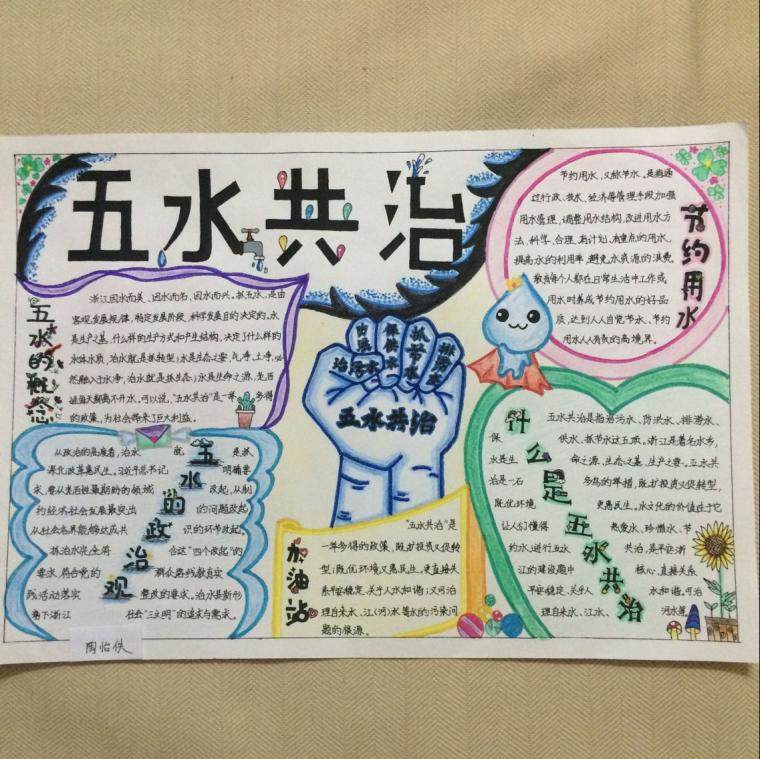 五水共治
五水的概念
浙江因水而美、因水而名、因水而兴。抓五水、是由
客观发展规律、特定发展阶段、科学发展目的决定的。水
是生产之基、什么样的生产方式和产业结构、决定了什么样的
水体水质、治水就是抓转型；水是生态之要、气净、土净、必
然融入于水净、治水就是抓生态；水是生命之源、
老百姓每天都离不开水、可以说、“五水共治”是一 多得
的政策、为社会带来了巨大利益。
节约用水
节约用水、又称节水、是指通
过行政、技术、经济等管理手段加强
用水管理、调整用水结构、改进用水方
法、科学、合理、有计划、有重点的用水、
提高水的利用率、避免水资源的浪费。
教育每个人都在日常生活中工作或
用水时养成节约用水的好品
质、达到人人自觉节水、节约
用水人人有责的高境界。
防洪水
保供水
抓节水
排涝水
治污水
五水共治
五水的政治观
从政治的高度看、治水 就 是抓
深化改革惠民生。习近平总书记 明确要
求、要从老百姓最期盼的领域 改起、从制
约经济社会发展最突出 的问题改起
从社会各界能够达成共 识的环节改起。
抓治水完全符 合这“四个改起”的
要求、符合党的 群众路线教育实
践活动落实 整改的要求。治水是新形
势下浙江 社会“三文明”的追求与需求。
加油站
“五水共治”是
一举多得的政策、既扩投资又促转
型；既优环境又惠民生。更直接关
系平安稳定、关乎人水和谐；又河治
理自来水、江（河）水等水的污染问
题的根源。
什么是五水共治
五水共治是指治污水、防洪水、排涝水、
保 供水、抓节水这五项。浙江是著名水乡、
水是生 命之源、生态之基、生产之要。五水共
治是一石 多鸟的举措、既扩投资又促转型、
既优环境 更惠民生。水文化的价值在于它
让人们懂得 热爱水、珍惜水、节
约水；进行五水 共治、是平安浙
江的建设题中 核心、直接关系
平安稳定、关乎人 水和谐、可治
理自来水、江水、 河水等
陶怡佚